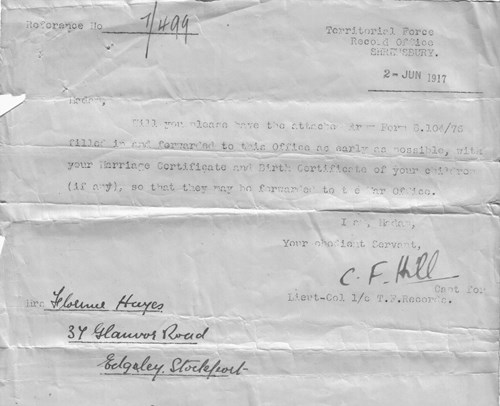 Reference No 7/499
Territorial Force
Record Office
SHREWSBURY.
2 - JUN 1917
Madam,
Will you please have the attache Army Form B.104/76
filled in and forwarded to this Office as early as possible, with
your Marriage Certificate and Birth Certificate of your children
(if any), so that they may be forwarded to t e War Office.
I am, Madam,
Your obedient Servant,
C. F. Hill
Capt for
Lieut-Col i/c T.F.Records.
Mrs Florence Hayes
34 Glanvor Road
Edgeley. Stockport